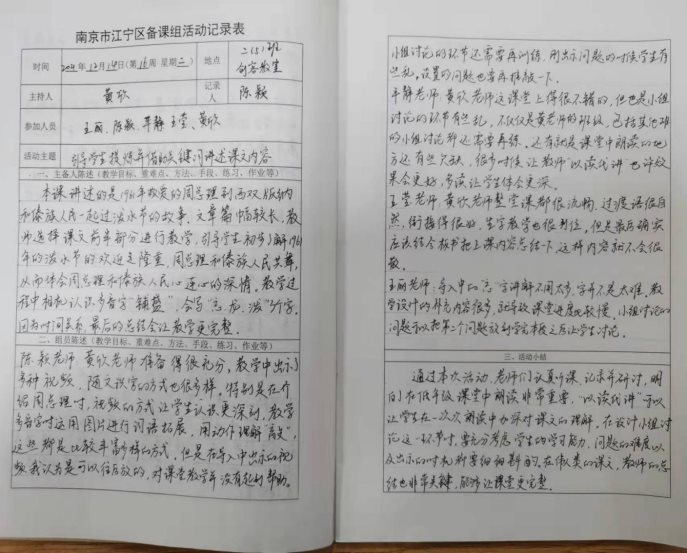 南京市江宁区备课组活动记录表
时间 2021年12月14日(第16周 星期二) 地点 二(5)班
创客教室
主持人 黄欣 记录人 陈颖
参加人员 王丽、陈颖、芊静、王莹、黄欣
活动主题 引导学生提炼并借助关键词讲述课文内容
一、主备人陈述(教学目标、重难点、方法、手段、练习、作业等)
本课讲述的是1961年敬爱的周总理到西双版纳
和傣族人民一起过泼水节的故事。文章篇幅较长,教
师选择课文前半部分进行教学,引导学生初步了解1961
年的泼水节的欢迎之隆重,周总理和傣族人民共舞,
从而体会周总理和傣族人民心连心的深情。教学过
程中相机认识多音字“铺盛”,会写“忘、龙、泼”3个字。
因为时间关系,最后的总结会让教学更完整。
二、组员陈述(教学目标、重难点、方法、手段、练习、作业等)
陈颖老师:黄欣老师准备得很充分,教学中出示了
多种视频,随文识字的方式也很多样。特别是在介
绍周总理时,视频的方式让学生认识更深刻,教学
多音字时运用图片进行词语拓展,用动作理解
这些都是比较丰富多样的方式。但是在导入中出示的视
频我认为是可以往后放的,对课堂教学并没有起到帮助。
小组讨论的环节还需要再训练,刚出示问题的时候学生有
些乱,设置的问题也要再推敲一下。
芊静老师:黄欣老师这课堂上得很不错的,但也是小组
讨论的环节有些乱,不仅仅是黄老师的班级,包括其他班
的小组讨论都还需要再练。还有就是课堂中朗读的地
方还有些欠缺,很多时候让教师“以读代讲”也许效
果会更好,多读让学生体会更深。
王莹老师:黄欣老师整堂课都很流畅,过渡语很自
然,衔接得很好,生字教学也很到位,但是最后确实
应该结合板书把上课内容总结一下,这样内容就不会很
散。
王丽老师:导入中的“忘”字讲解不用太多,字并不是太难,教
学设计的补充内容很多,就导致课堂进度比较慢,小组讨论的
问题可以把第二个问题放到学完本段之后让学生讨论。
三、活动小结
通过本次活动,老师们认真听课,记录并研讨,明
白在低年级课堂中朗读非常重要,“以读代讲”可以
让学生在一次次朗读中加深对课文的理解。在设计小组讨
论这一环节时,要充分考虑学生的学习能力,问题的难度以
及出示的时机都要细细斟酌,在伟人类的课文,教师的总
结也非常关键,能够让课堂更完整。